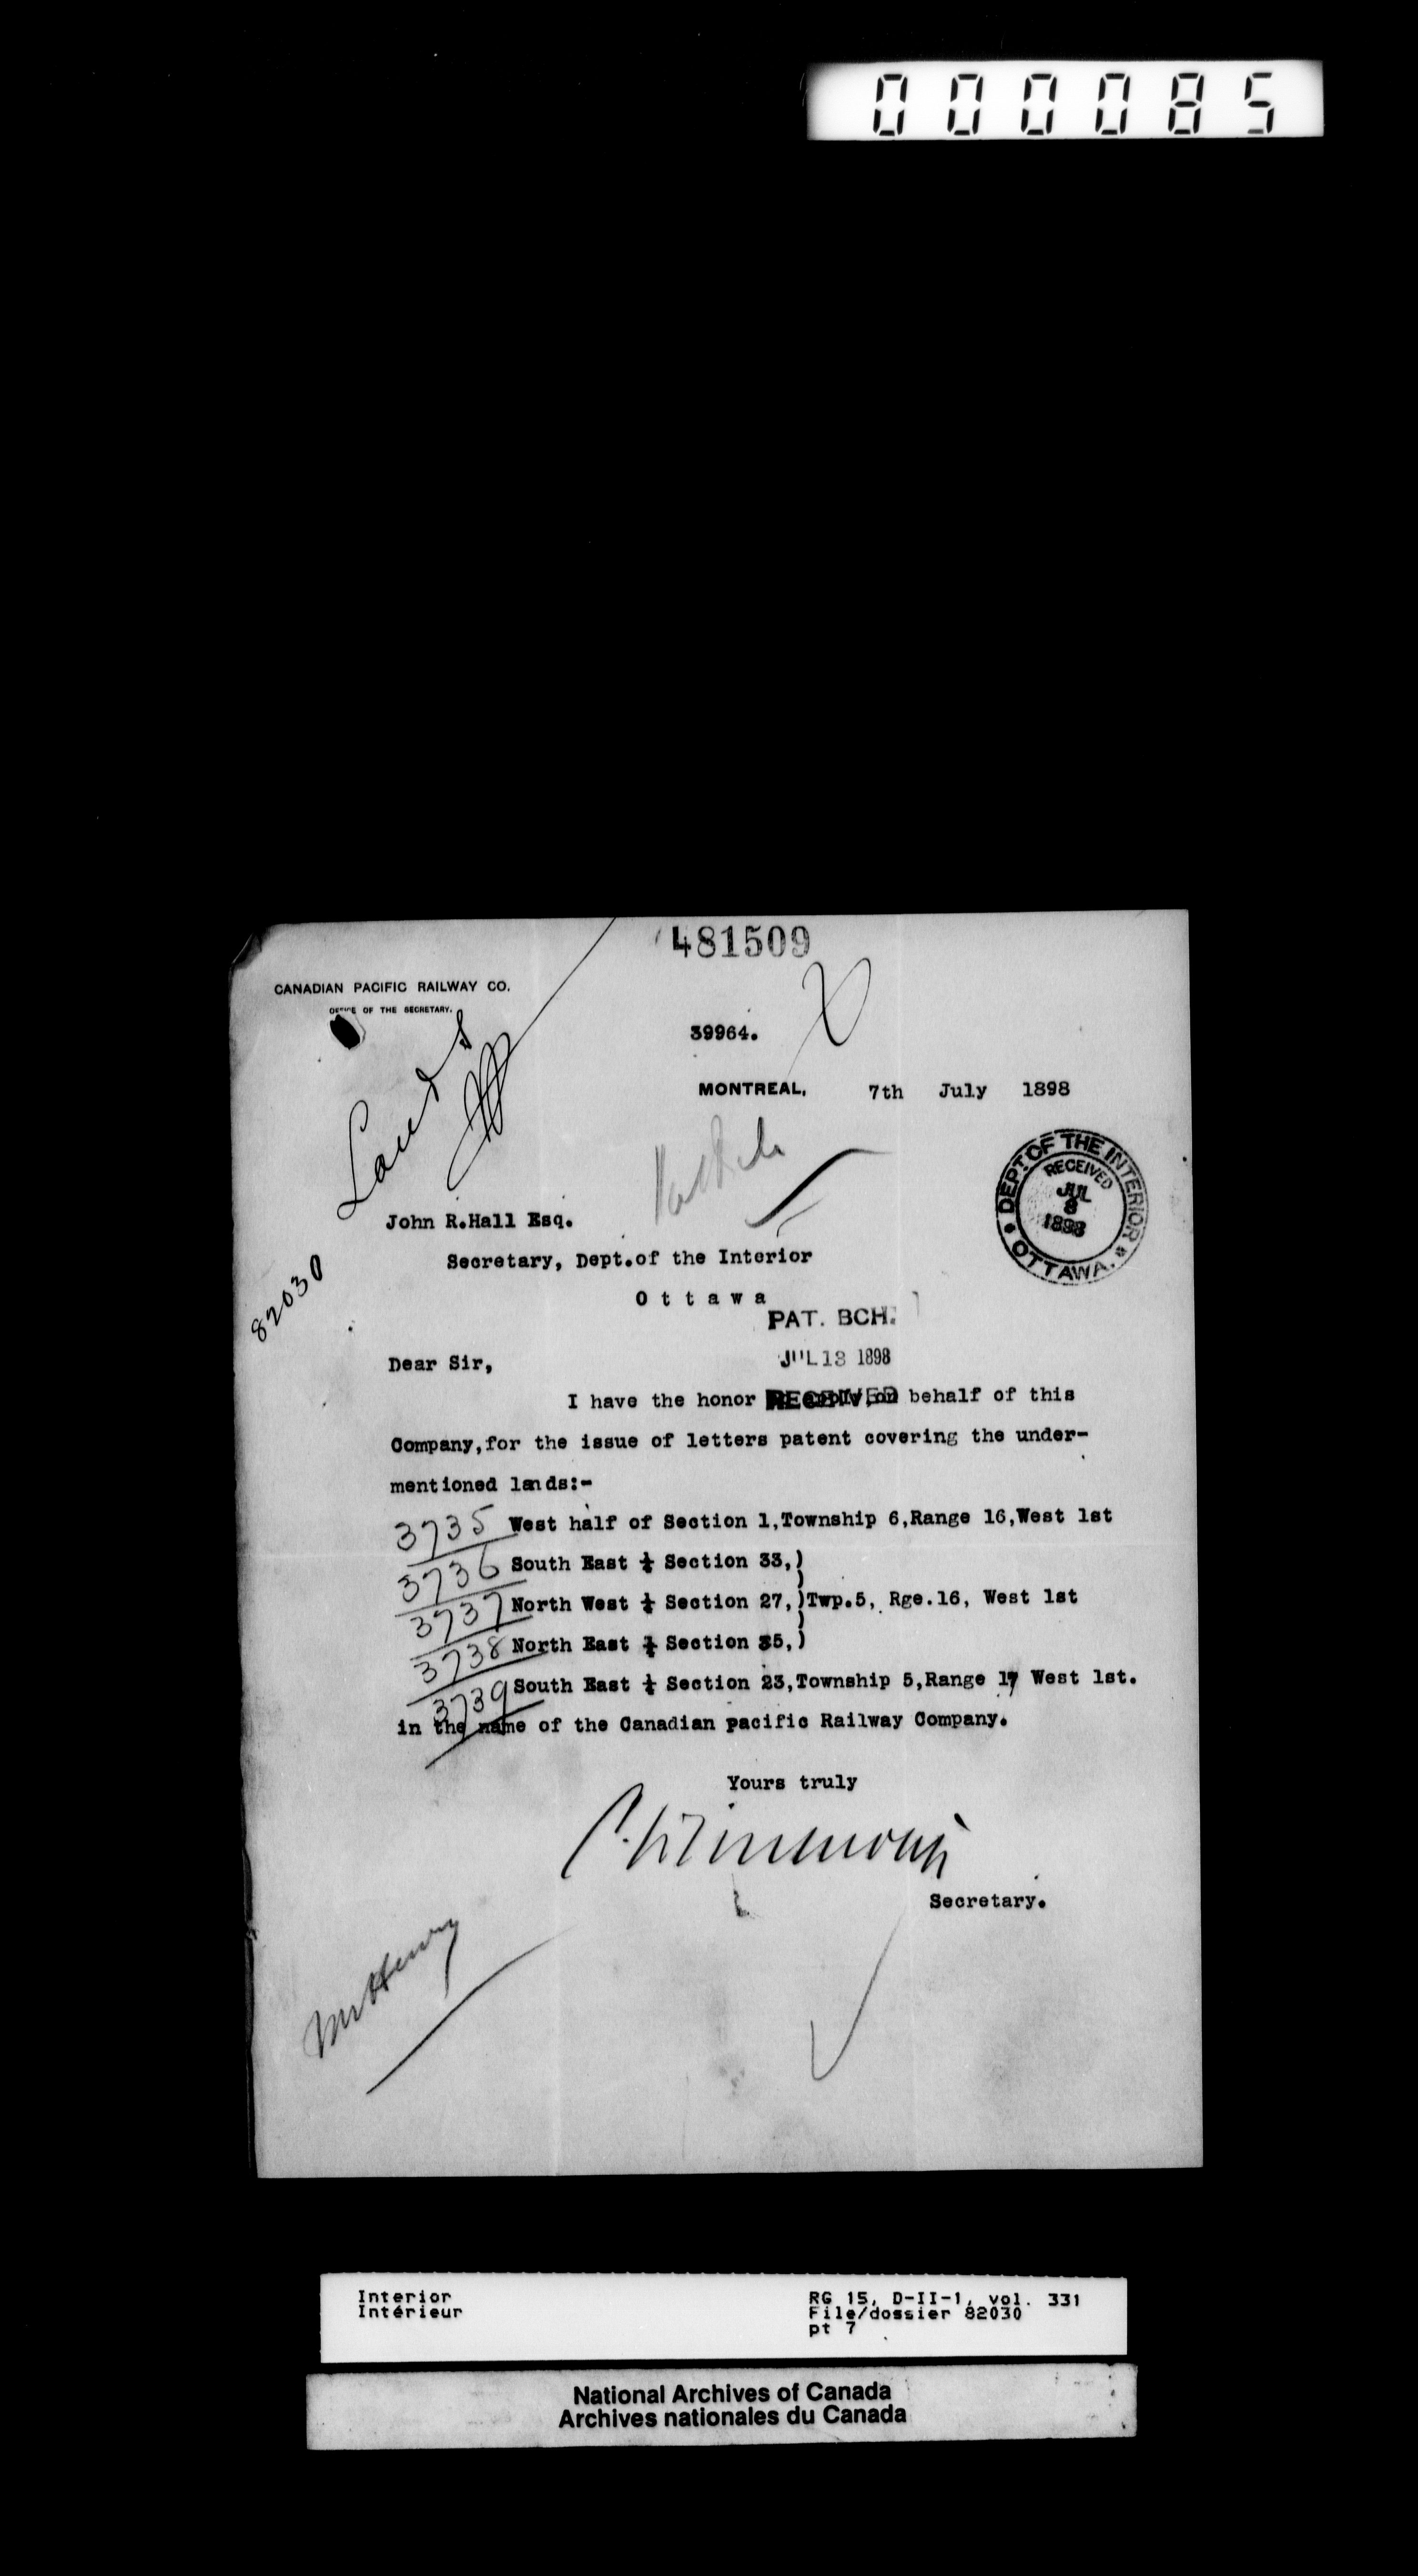 000085
481509
CANADIAN PACIFIC RAILWAY CO.
OFFICE OF THE SECRETARY.
39964.
Lands
MONTREAL, 7th July 1898
DEPT. OF THE INTERIOR
RECEIVED
JUL
8
1898
OTTAWA.
John R.Hall Esq.
Secretary, Dept.of the Interior
82030
Ottawa
PAT. BCH.
JUL 13 1898
RECEIVED
Dear Sir,
I have the honor to apply,on behalf of this
Company,for the issue of letters patent covering the under-
mentioned lands:-
3735 West half of Section 1,Township 6,Range 16,West 1st
3736 South East ¼ Section 33,)
3737 North West ¼ Section 27,)Twp.5, Rge.16, West 1st
3738 North East ¼ Section 35,)
3739 South East ¼ Section 23,Township 5,Range 17 West 1st.
in the name of the Canadian pacific Railway Company.
Yours truly
Secretary.
Mr Henry
Interior
Intérieur
RG 15, D-II-1, vol. 331
File/dossier 82030
pt 7
National Archives of Canada
Archives nationales du Canada